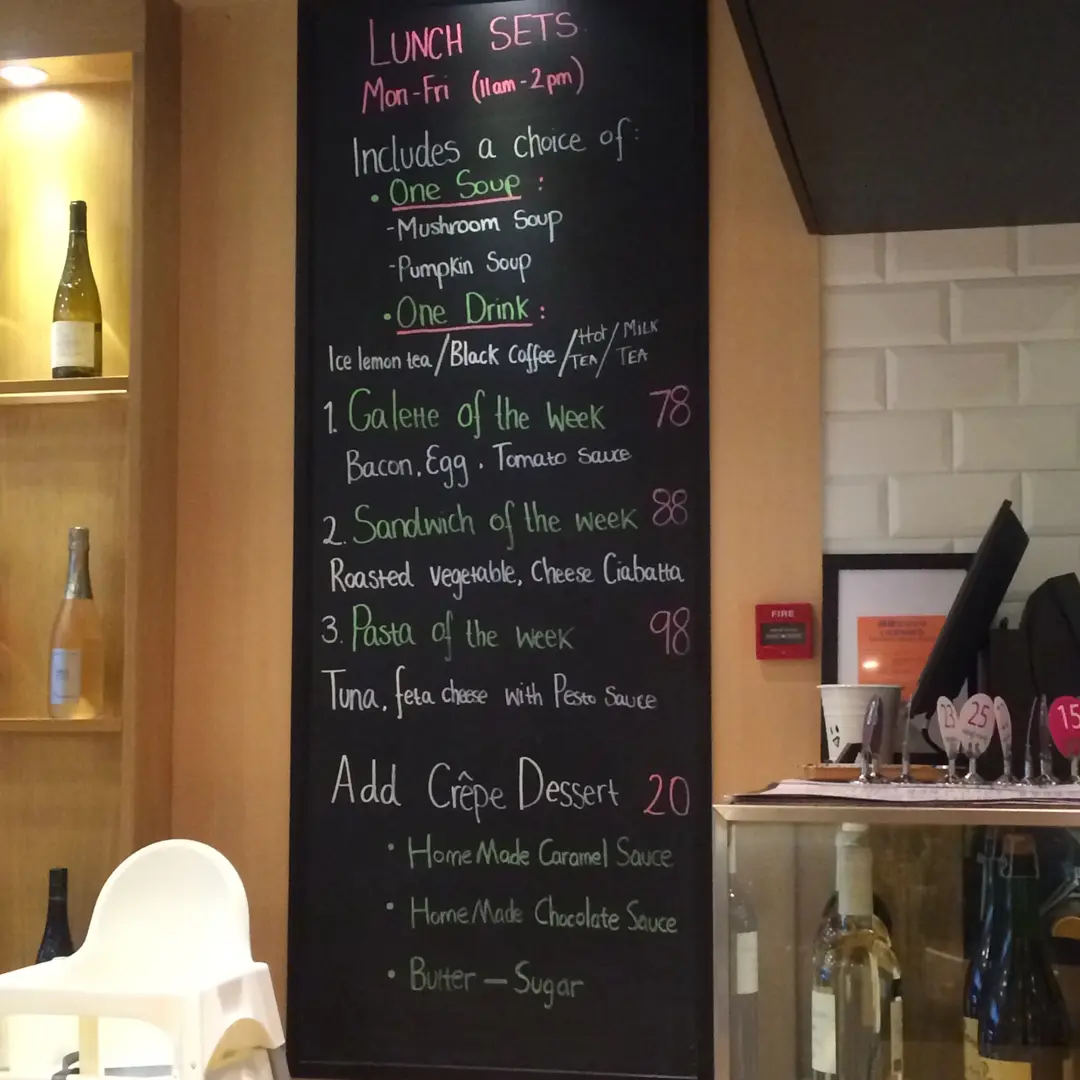 LUNCH SETS
Mon-Fri (11am-2pm)
Includes a choice of:
• One Soup :
-Mushroom Soup
-Pumpkin Soup
• One Drink :
Ice lemon tea/Black Coffee/Hot TEA/MILK TEA
1. Galette of the week 78
Bacon, Egg, Tomato Sauce
2. Sandwich of the week 88
Roasted vegetable, Cheese Ciabatta
3. Pasta of the week 98
Tuna, feta cheese with Pesto Sauce
Add Crêpe Dessert 20
• HomeMade Caramel Sauce
• HomeMade Chocolate Sauce
• Butter — Sugar
FIRE
23
25
15